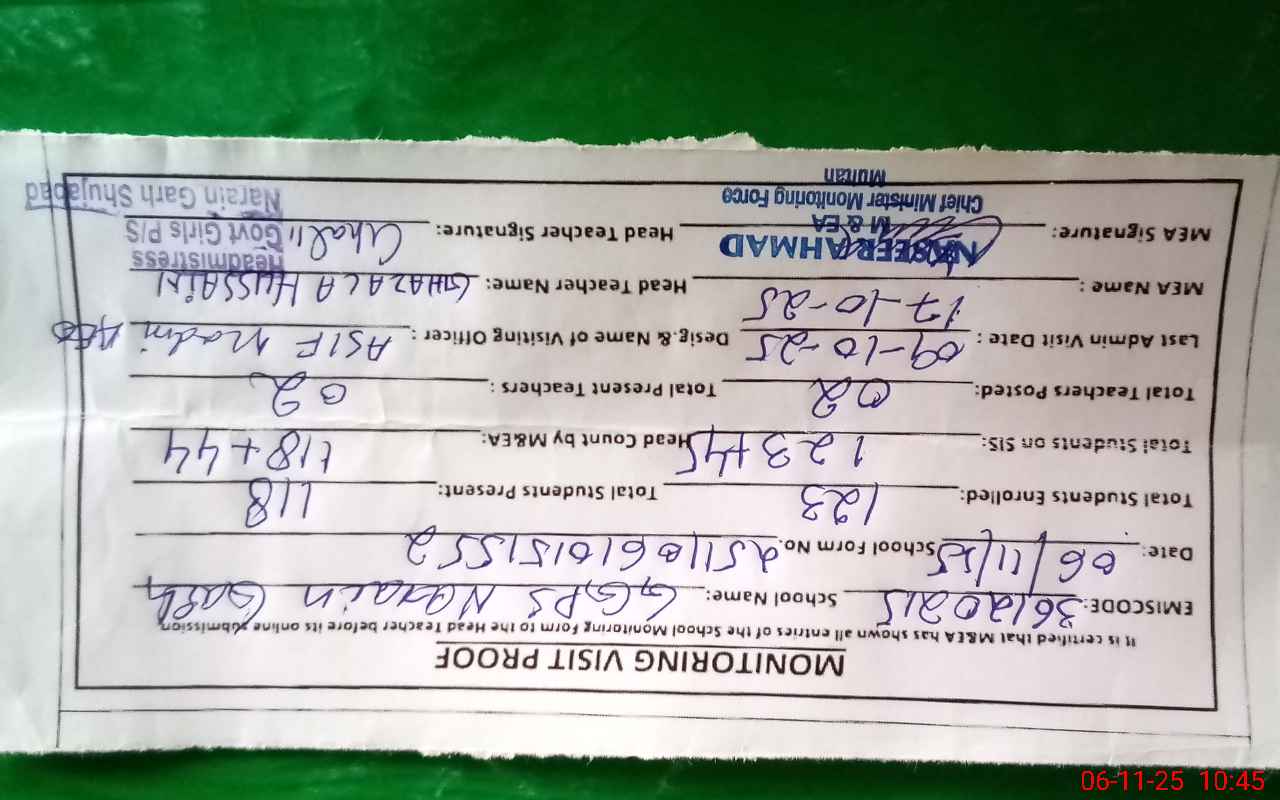 MONITORING VISIT PROOF
It is certified that M&EA has shown all entries of the School Monitoring Form to the Head Teacher before its online submission
EMISCODE: 36120215 School Name: GGPS Narain Garh
Date: 06/11/25 School Form No. 2511061015155 2
Total Students Enrolled: 123 Total Students Present: 118
Total Students on SIS: 123+45 Head Count by M&EA: 118+44
Total Teachers Posted: 02 Total Present Teachers : 02
Last Admin Visit Date : 09-10-25 Desig.& Name of Visiting Officer : ASIF Nadni AEO
17-10-25
MEA Name : Head Teacher Name: GHAZALA HUSSAIN
NASEER AHMAD
M & EA
Chief Minister Monitoring Force
Multan
MEA Signature: Head Teacher Signature:
Headmistress
Govt Girls P/S
Narain Garh Shujabad
06-11-25 10:45